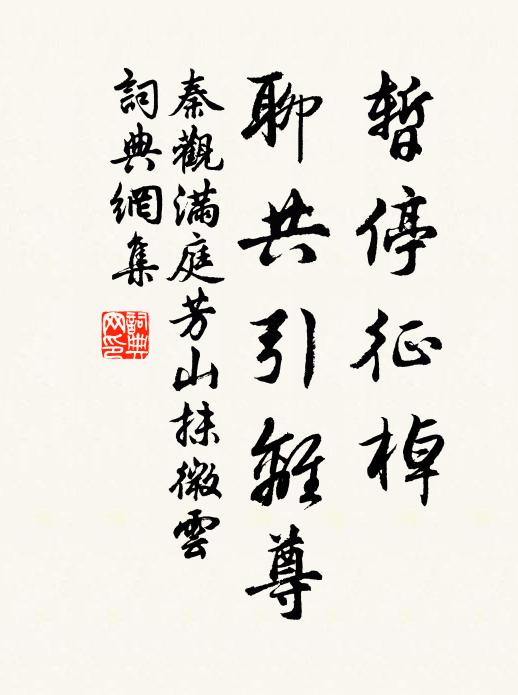 暫停征棹
聊共引離尊
秦觀滿庭芳山抹微雲
詞典網集
詞典網印